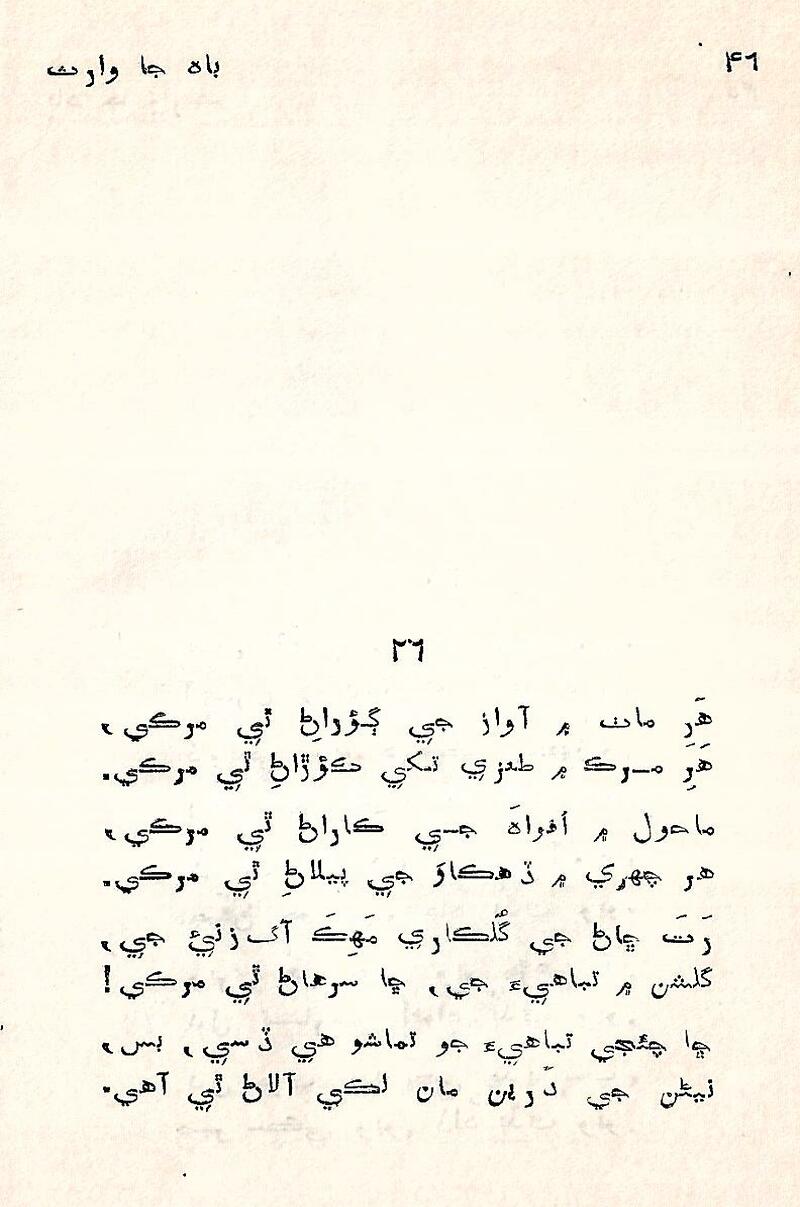 ۴٦ باه جا وارث
۲٦
هَرِ مات ۾ آواز جي گؤراڻِ ٿي مرڪي،
هَرِ مـرڪ ۾ طنزي تکي ڪؤڙاڻِ ٿي مرڪي.
ماحول ۾ اُفواهَ جـي ڪاراڻ ٿي مرڪي،
هر چهري ۾ ڏهڪاوَ جي پيلاڻِ ٿي مرڪي.
رَتَ ڇاڻ جي گُلڪاري مَهڪَ آگ زنيءَ جي،
گلشن ۾ تباهيءَ جي، ڇا سرهاڻ ٿي مرڪي!
ڇا چئجي تباهيءَ جو تماشو هي ڏسي، بس،
نيڻن جي دَرين مان لڪي آلاڻ ٿي آهي.